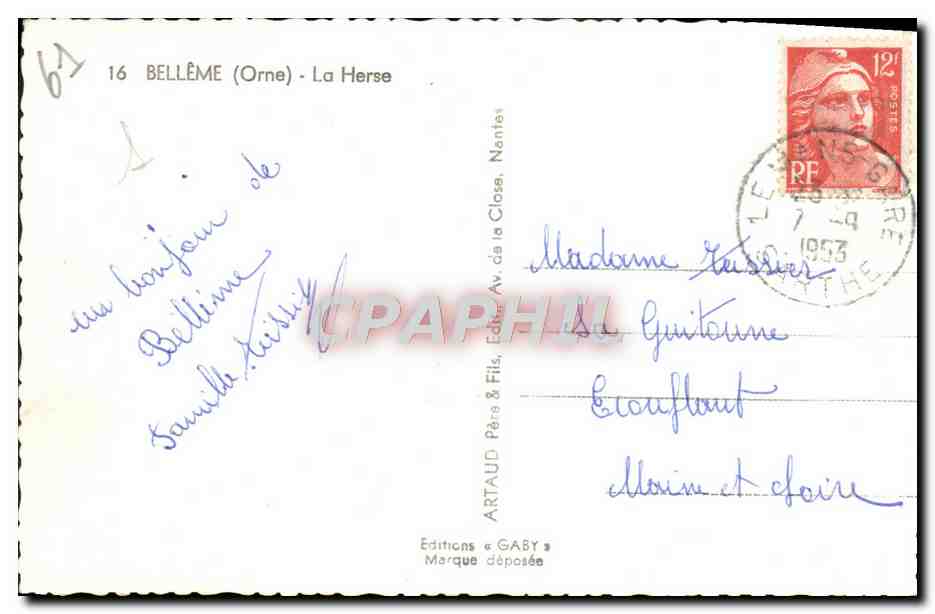 61
16 BELLÊME (Orne) - La Herse
12f
POSTES
RF
LE MANS-GARE
7 -9
1953
SARTHE
un bonjour de
Bellême
famille Teissier
ARTAUD Père & Fils, Edit., Av. de la Close, Nantes
Madame Teissier
La Guitoune
Ecouflant
Maine et Loire
CPAPHIL
Editions « GABY »
Marque déposée